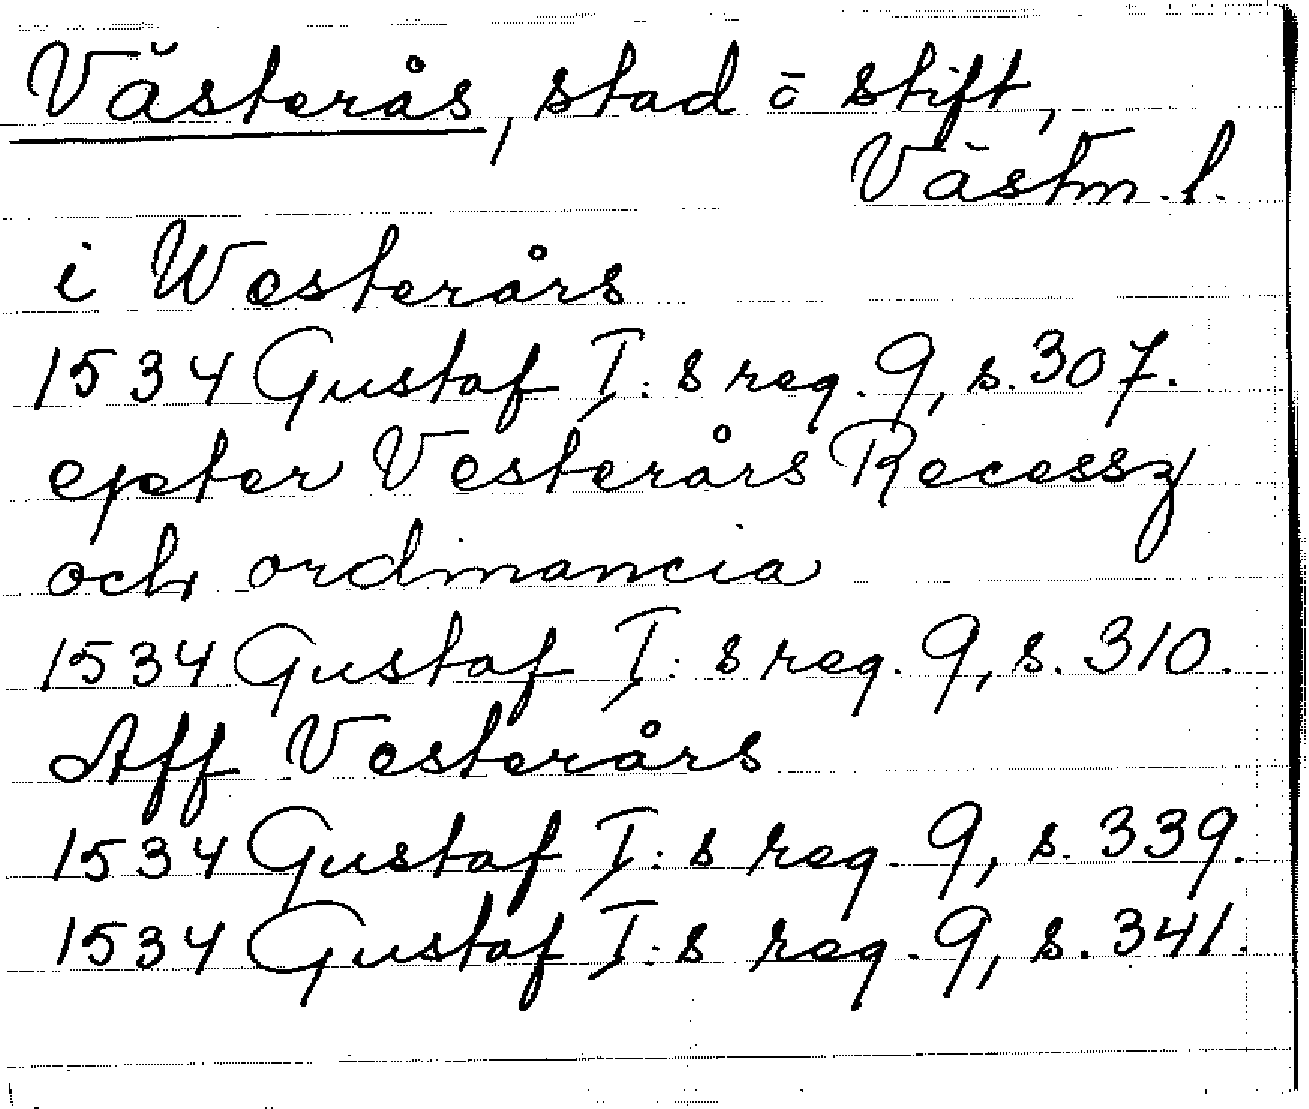 Västerås, stad ō stift,
Västm. l.
i Westerårs
1534 Gustaf I: s reg. 9, s. 307.
epter Vesterårs Recessz
och ordinancia
1534 Gustaf I: s reg. 9, s. 310.
Aff Vesterårs
1534 Gustaf I: s reg. 9, s. 339.
1534 Gustaf I: s reg. 9, s. 341.